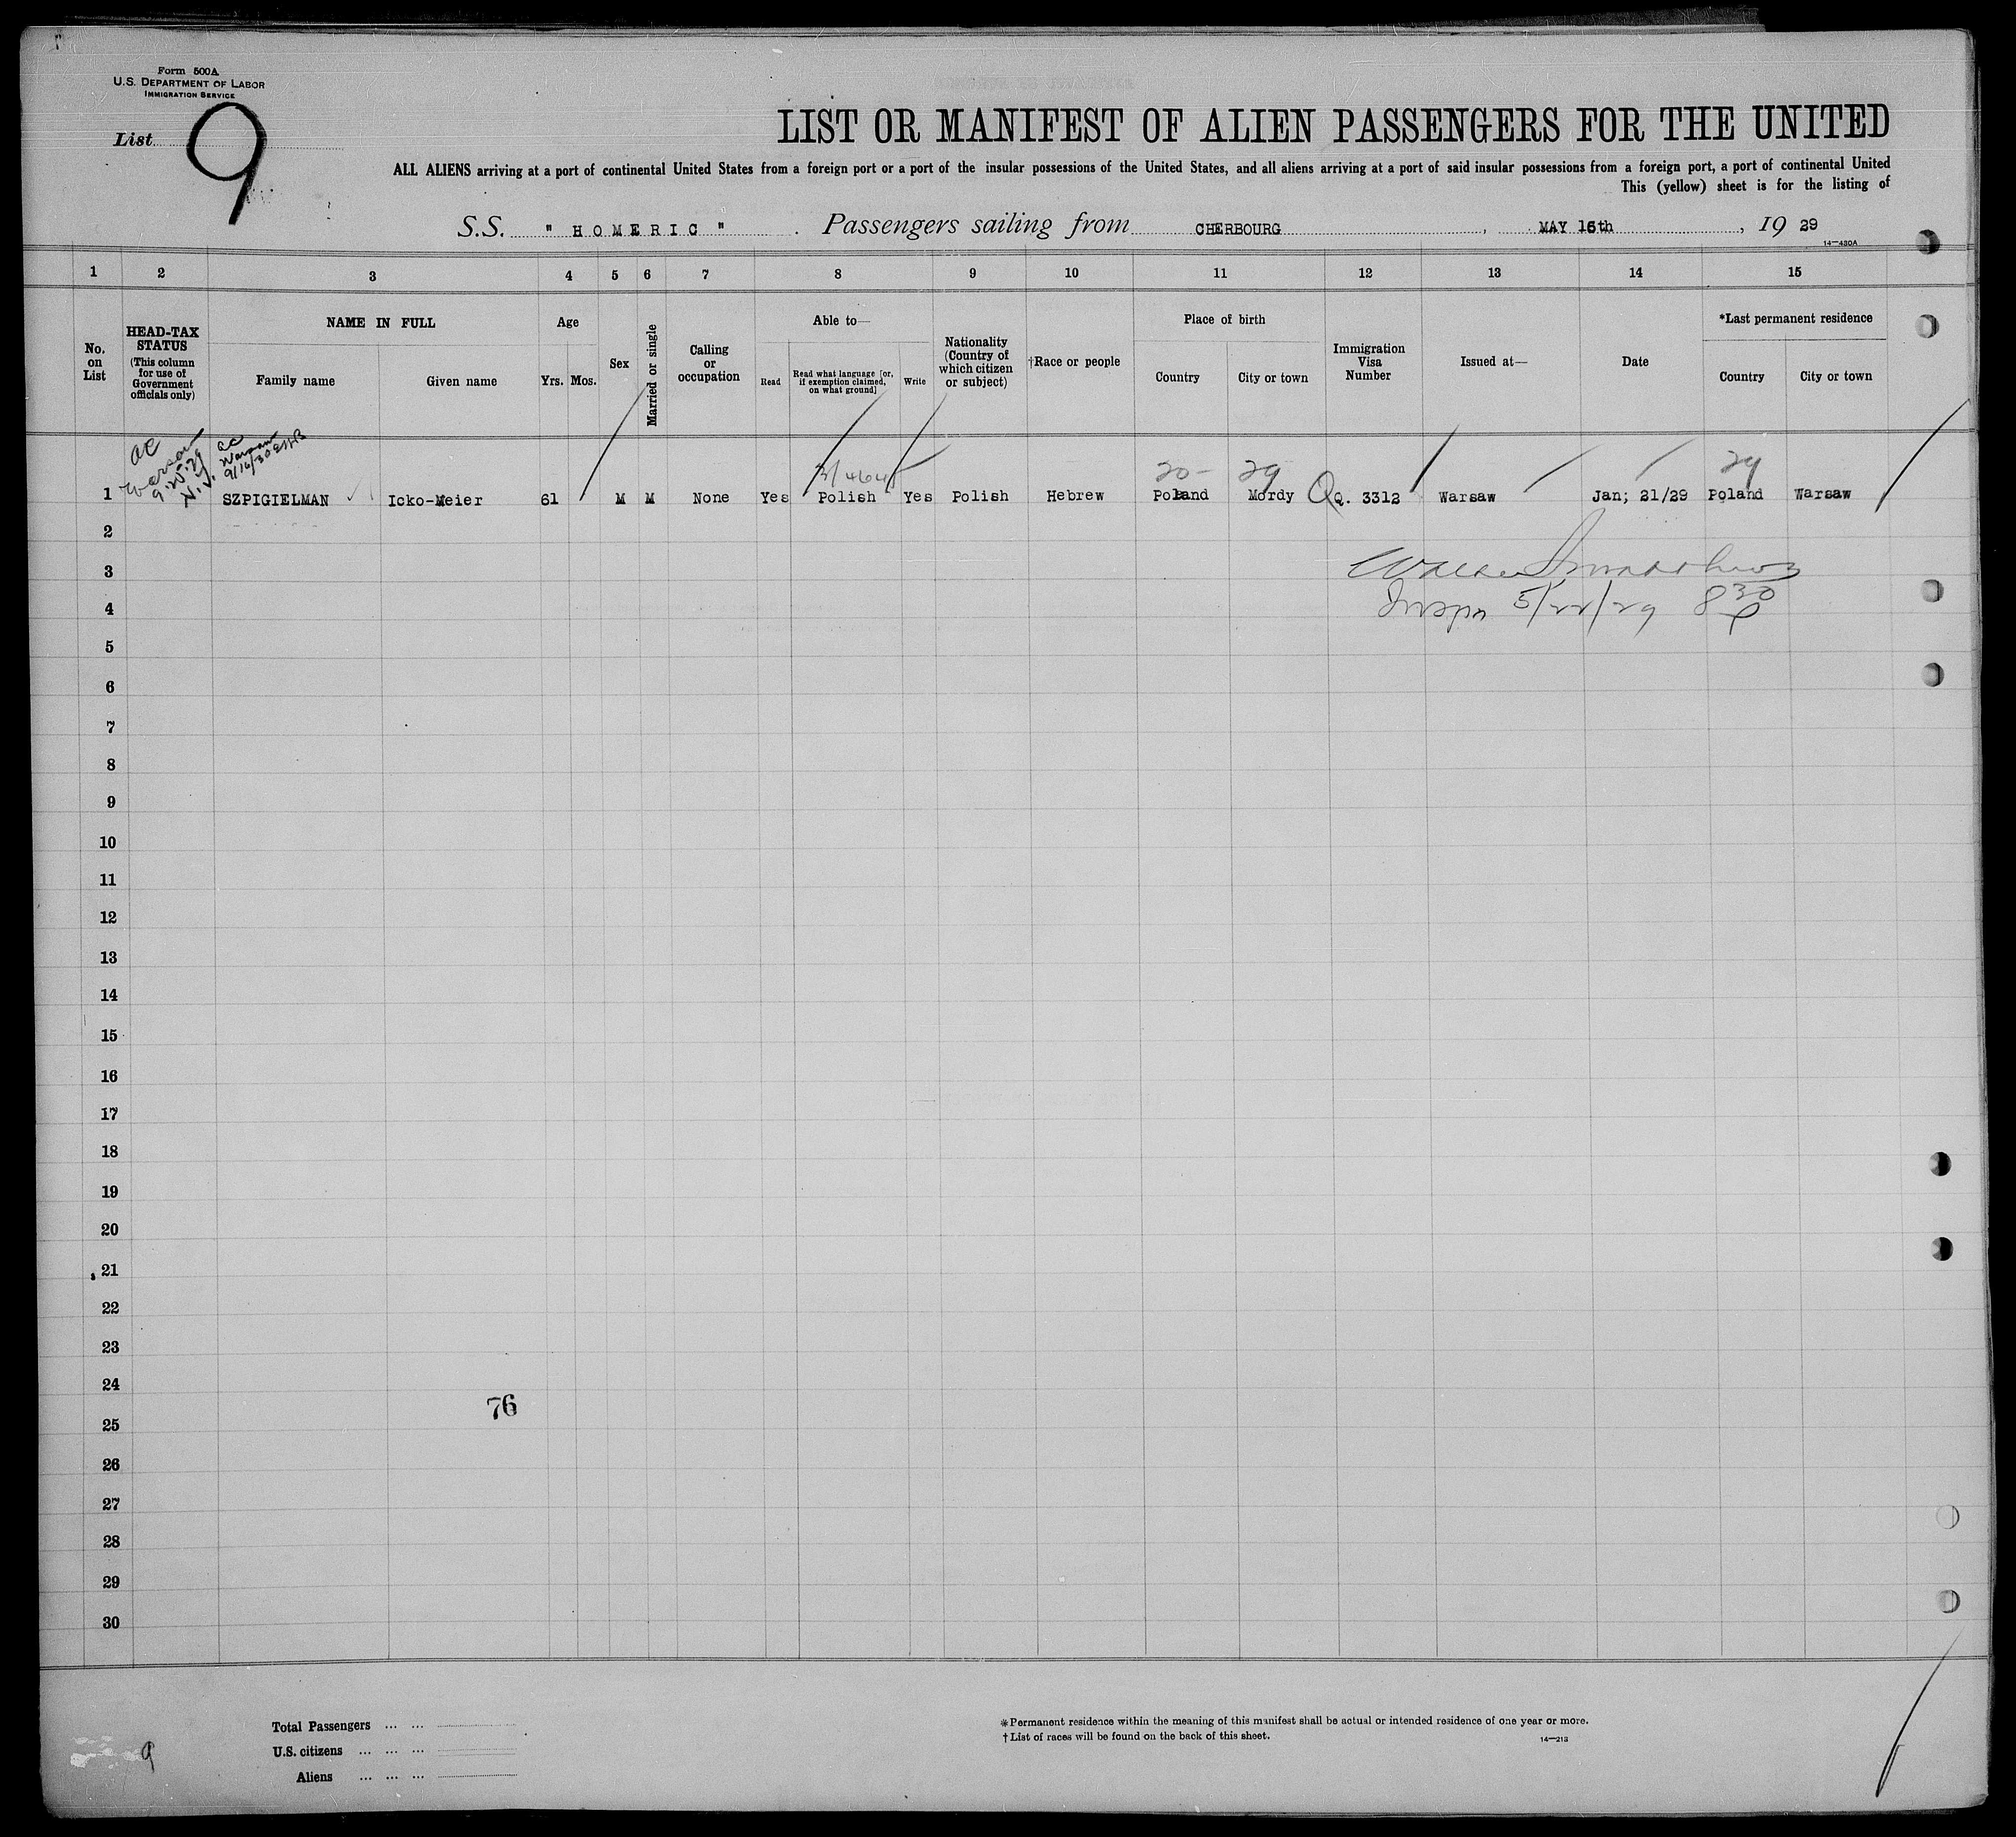 Form 500A
U.S. DEPARTMENT OF LABOR
IMMIGRATION SERVICE
List 9
LIST OR MANIFEST OF ALIEN PASSENGERS FOR THE UNITED
ALL ALIENS arriving at a port of continental United States from a foreign port or a port of the insular possessions of the United States, and all aliens arriving at a port of said insular possessions from a foreign port, a port of continental United
This (yellow) sheet is for the listing of
S.S. " HOMERIC " . Passengers sailing from CHERBOURG , MAY 16th , 19 29
14—430A
1 2 3 4 5 6 7 8 9 10 11 12 13 14 15
No. on List
HEAD-TAX STATUS (This column for use of Government officials only)
NAME IN FULL
Family name
Given name
Age
Yrs. Mos.
Sex
Married or single
Calling or occupation
Able to—
Read
Read what language [or, if exemption claimed, on what ground]
Write
Nationality (Country of which citizen or subject)
†Race or people
Place of birth
Country
City or town
Immigration Visa Number
Issued at—
Date
*Last permanent residence
Country
City or town
ac
Warsaw
9.25.29
N.Y.
ac
Warsaw
9/16/30
3/464
20 - 29
29
1 SZPIGIELMAN Icko-Meier 61 M M None Yes Polish Yes Polish Hebrew Poland Mordy Q Q. 3312 Warsaw Jan; 21/29 Poland Warsaw
2
3
Inspr 5/22/29 8 30
4
5
6
7
8
9
10
11
12
13
14
15
16
17
18
19
20
21
22
23
24
76
25
26
27
28
29
30
Total Passengers ... ...
U.S. citizens ... ... ...
Aliens ... ... ...
9
*Permanent residence within the meaning of this manifest shall be actual or intended residence of one year or more.
†List of races will be found on the back of this sheet.
14—213